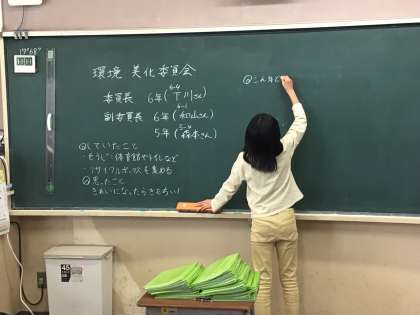 環境 美化委員会
委員長 6年(6-4 下川さん)
副委員長 6年(6-1 和山さん)
5年(5-4 森本さん)
◎していたこと
・そうじ・体育館やトイレなど
・リサイクルボックスを集める
◎思ったこと
きれいになったらきもちい!
◎こんなと
45